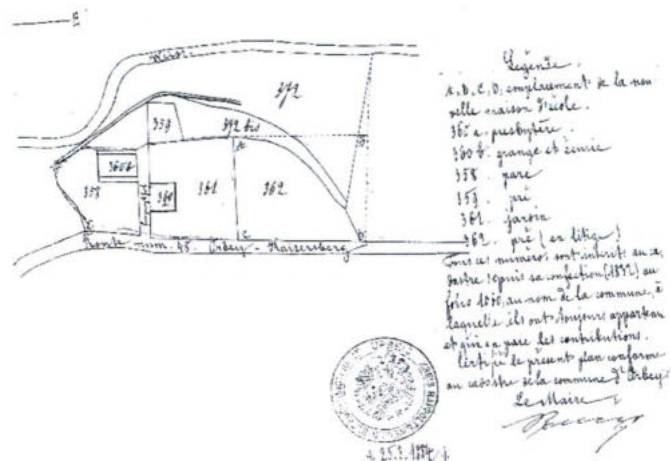 E
Weiss
372
359
372 bis
A
B
360b
358
360
361
362
C
D
Route num. 48 Orbey - Kaisersberg
Légende.
A, B, C, D, emplacement de la nou
velle maison d'école.
360 a presbytère
360 b grange et écurie
358 parc
359 pré
361 jardin
362 pré (en litige)
Tous ces numéros sont inscrits au ca,
dastre depuis sa confection (1832) au
folio 1060, au nom de la commune, à
laquelle ils ont toujours appartenu
et qui en paie les contributions.
Certifié le présent plan conforme
au cadastre de la commune d'Orbey.
Le Maire
25.2.